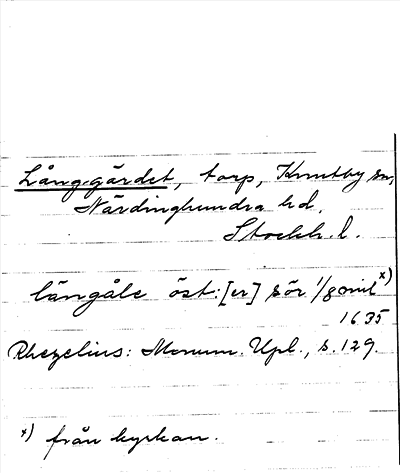 Långgärdet, torp, Knutby sn,
Närdinghundra hd,
Stockh. l.
långåle öst:[er] sör 1/8 mil x)
1635
Rhezelius: Monum. Upl., s. 129.
x) från kyrkan.